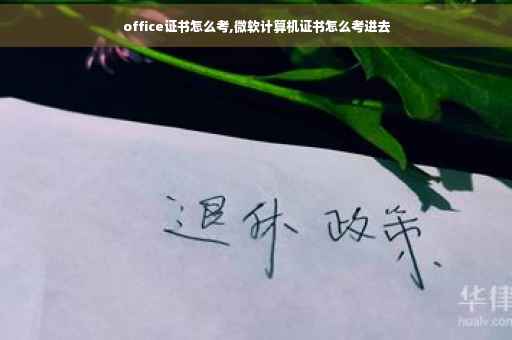 office证书怎么考,微软计算机证书怎么考进去
退休政策
华律
hualv.com